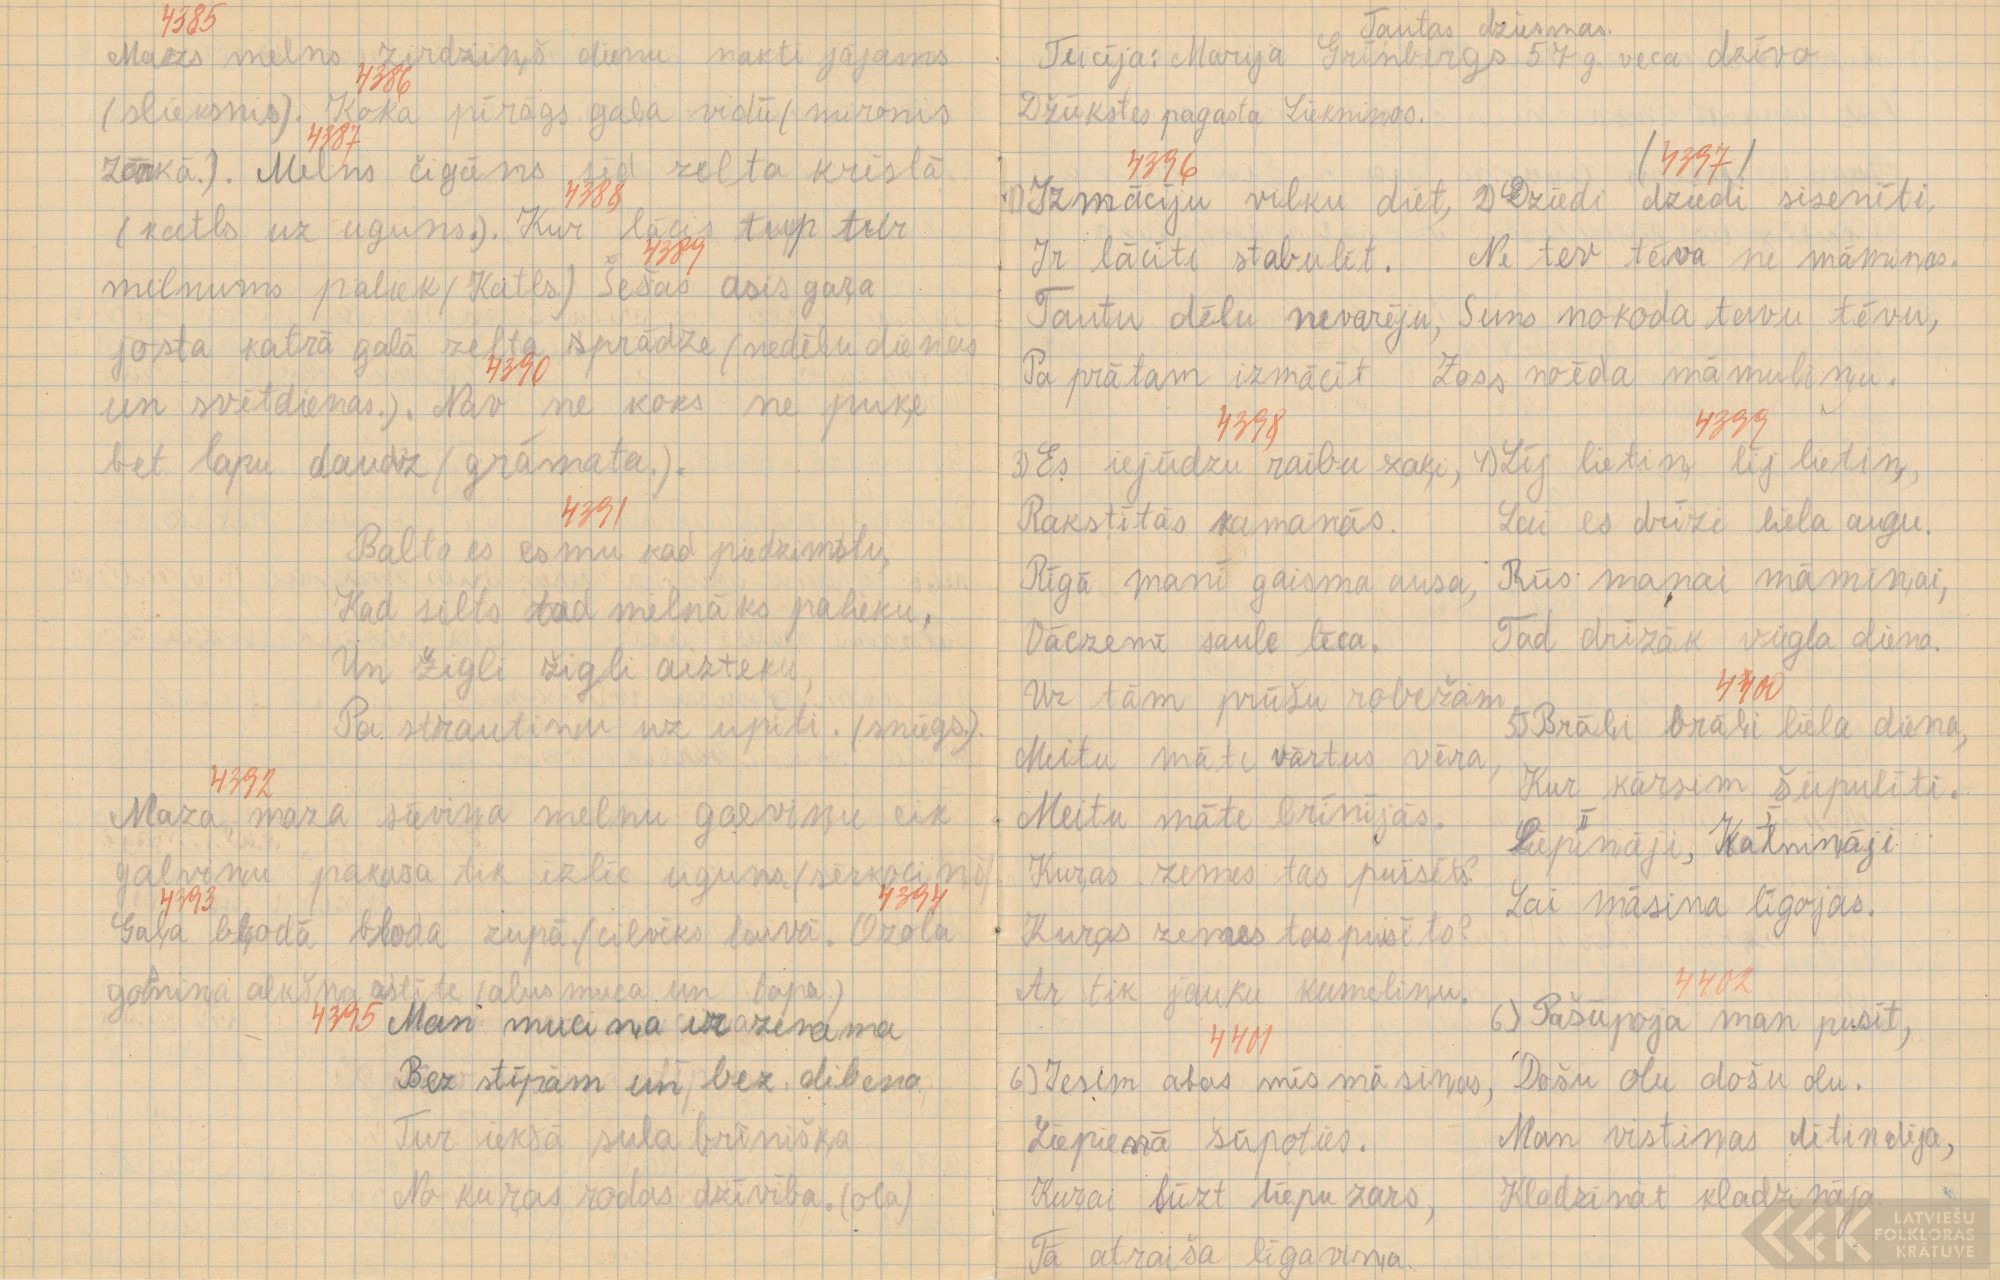 4385
Mazs melns zirdziņš dienu nakti jājams
4386
(slieksnis). Koka pīrāgs gaļa vidū (mironis
4387
zārkā.). Melns čigāns sēd zelta krēslā
4388
(katls uz uguns.). Kur lācis tup tur
4389
melnums paliek (Katls.) Sešas asis gaŗa
josta katrā galā zelta sprādze (nedēļu dienas
4390
un svētdienas.). Nav ne koks ne puķe
bet lapu daudz (grāmata.).
4391
Balts es esmu kad piedzimstu,
Kad silts tad melnāks palieku,
Un žigli žigli aizteku,
Pa strautiņu uz upīti. (sniegs.).
4392
Maza, maza sieviņa melnu galviņu cik
galviņu pakasa tik izlec uguns. (sērkociņš)
4393 4394
Gaļa bļodā bļoda zupā. (cilvēks laivā. Ozola
gotniņa alkšņa astīte (alus muca un tapa.)
4395 Man muciņa ir azenama
Bez stīpām un bez dibena,
Tur iekšā sula brīnišķa
No kuŗas rodas dzīvība. (ola)
Tautas dziesmas.
Teicēja: Marija Grīnbergs 57 g. veca dzīvo
Džūkstes pagasta Liekniņos.
4396
1) Izmācīju vilku diet,
Ir lācīti stabulēt.
Tautu dēlu nevarēju,
Pa prātam izmācīt
(4397)
2) Dziedi dziedi sisenīti,
Ne tev tēva ne māmiņas.
Suns nokoda tavu tēvu,
Zoss noēda māmuliņu.
4398
3) Es iejūdzu raibu zaķi,
Rakstītās kamanās.
Rīgā manī gaisma ausa,
Vāczemē saule lēca.
Uz tām prūšu robežām
Meitu māte vārtus vēra,
Meitu māte brīnījās.
Kuŗas zemes tas puisēts?
Kuŗas zemes tas puisīts?
Ar tik jauku kumeliņu.
4399
4) Līj lietiņ līj lietiņ,
Lai es drīzi liela augu.
Būs manai māmiņai,
Tad drīzāk viegla diena.
4400
5) Brāļi brāļi liela diena,
Kur kārsim šūpulīti.
II I
Liepiņāji, Katniņāji
Lai māsiņa līgojas.
4401
6) Iesim abas mēs māsiņas,
Liepienā šūpoties.
Kuŗai lūzt liepu zars,
Tā atraiša līgaviņa.
4402
6) Pašūpoja man puisīt,
Došu olu došu olu.
Man vistiņas dētin dēja,
Kladzināt kladzināja
LATVIEŠU
FOLKLORAS
KRĀTUVE